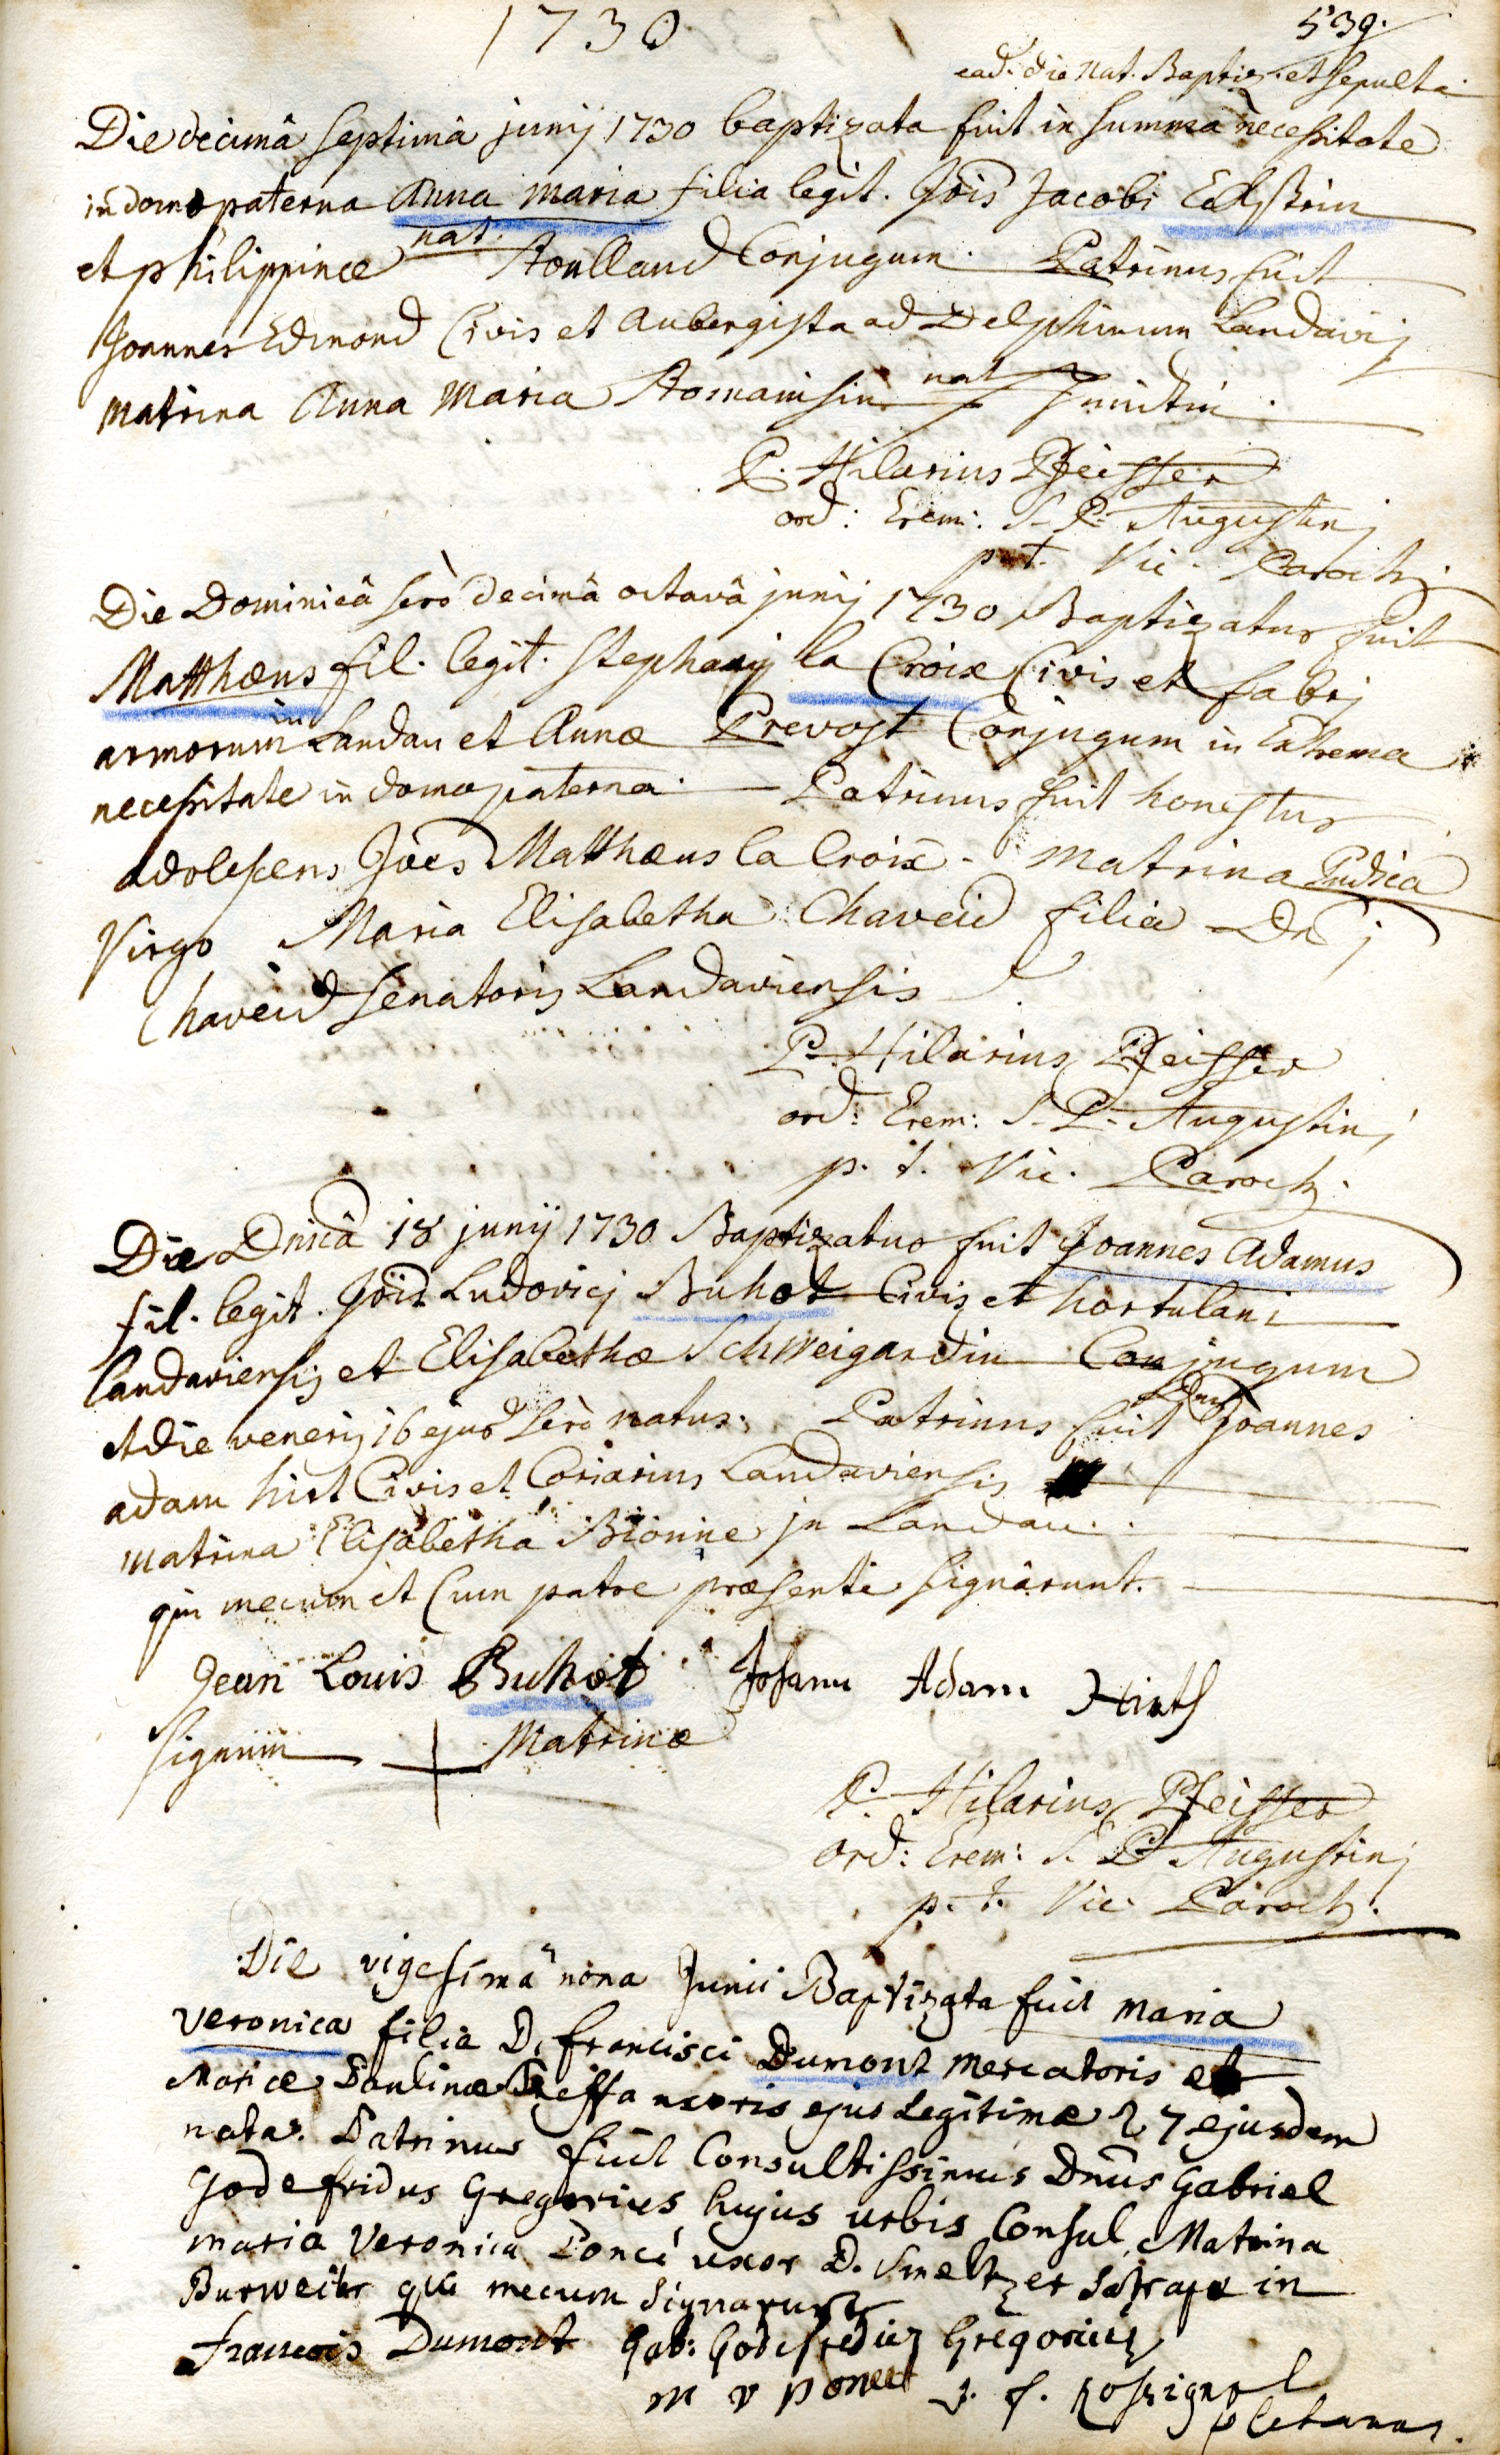 1730
539.
ead. die nat. Baptiz. et sepulta.
Die decimâ septimâ junij 1730 baptizata fuit in summa necessitate
in domo paterna Anna Maria filia legit. Jois Jacobi Eckstein
et philippinæ nat. Conjugum. Patrinus fuit
Joannes Edmond Civis et aubergista ad Delphinum Landavij
matrina Anna Maria nat
P. Hilarius Pfeiffer
ord: Erem: S. P. Augustinj
p. t. Vic. Paroch.
Die Dominicâ serò decimâ octavâ junij 1730 Baptizatus fuit
Matthæus fil. legit. stephanj la Croix Civis et fabrj
armorum in Landau et Annæ Prevost Conjugum in Extrema
necessitate in domo paterna. Patrinus fuit honestus
adolescens Joes Matthæus la Croix. Matrina Pudica
Virgo Maria Elisabetha Chaveid filia Dnj
Chaveid senatoris Landaviensis
P. Hilarius Pfeiffer
ord: Erem: S. P. Augustinj
p. t. Vic. Paroch.
Die Dnicâ 18 junij 1730 Baptizatus fuit Joannes Adamus
fil. legit. Jois Ludovicj Buhot Civis et hortulani
Landaviensis et Elisabethæ Schweigardin Conjugum
et die veneris 16 ejusd serò natus. Patrinus fuit Dnus Joannes
adam hirt Civis et Coriarius Landaviensis
matrina Elisabetha Bionne jn Landau.
qui mecum et Cum patre præsente signârunt.
Jean Louis Buhot Johann Adam Hirth
signum + Matrinæ
P. Hilarius Pfeiffer
ord: Erem: S. P. Augustinj
p. t. Vic. Paroch.
Die vigesimâ nona Junii Baptizata fuit maria
Veronica filia D. francisci Dumont mercatoris et
Mariæ Paulinæ uxoris ejus Legitimæ 27 ejusdem
nata. Patrinus fuit Consultissimus Dnus Gabriel
Godefridus Gregorius hujus urbis Consul, Matrina
maria Veronica Poncé uxor D. Smeltzer satrapæ in
Burweiler qui mecum signarunt
Francois Dumont Gab: Godefredus Gregorius
m v poncet J. f. Rossignol
plebanus.